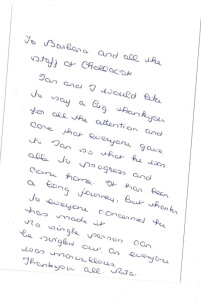 To Barbara and all the
staff at
Ian and I would like
to say a big thankyou
for all the attention and
care that everyone gave
to Ian so that he was
able to progress and
come home. It has been
a long journey. But thanks
to everyone concerned he
has made it
No single person can
be singled out. as everyone
was marvellous
Thankyou all.